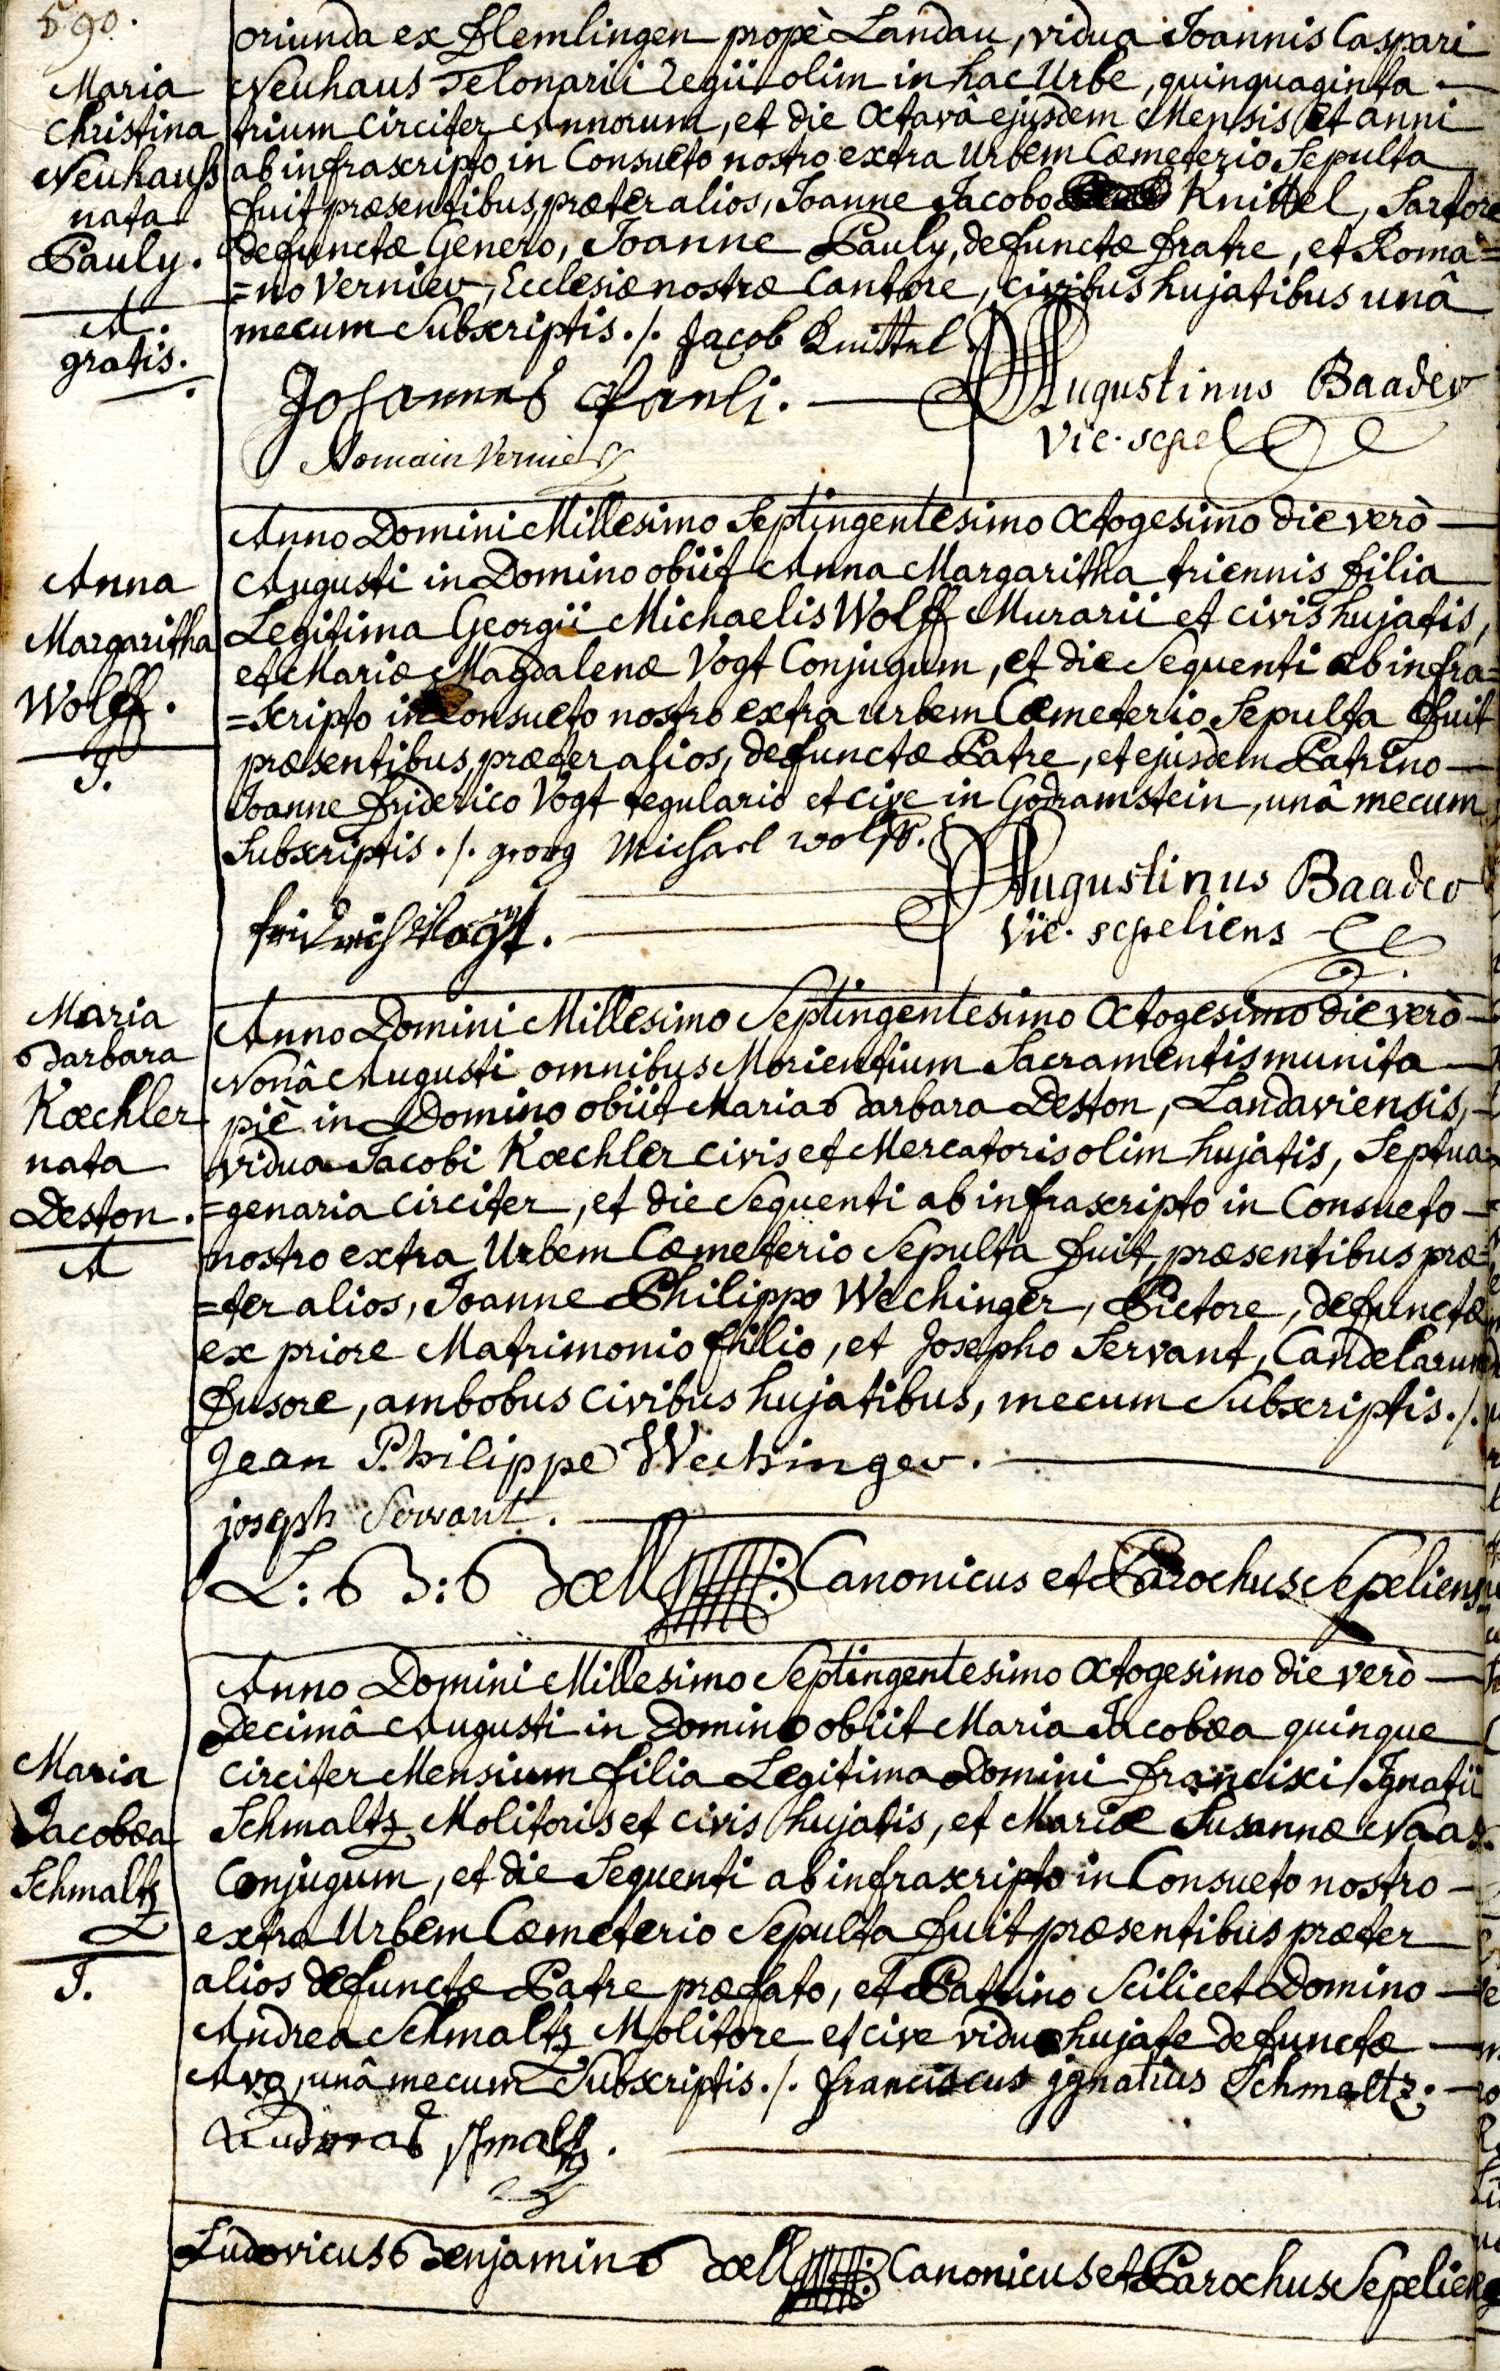 590.
oriunda ex Flemlingen propè Landau, vidua Joannis Caspari
Neuhaus Telonarii regii olim in hac Urbe, quinquaginta
trium circiter Annorum, et die Octavâ ejusdem Mensis et anni
ab infrascripto in Consueto nostro extra Urbem Cœmeterio Sepulta
fuit præsentibus, præter alios, Joanne Jacobo Knittel, Sartore
defunctæ Genero, Joanne Pauly, defunctæ fratre, et Roma=
=no Vernier, Ecclesiæ nostræ Cantore, civibus hujatibus unâ
mecum Subscriptis ./. Jacob Knittel.
Johannes Pauli.
Romain Vernier
Augustinus Baader
Vic. sepel
Maria
Christina
Neuhauß
nata
Pauly.
A.
gratis.
Anno Domini Millesimo Septingentesimo Octogesimo die verò
Augusti in Domino obiit Anna Margaritha triennis filia
Legitima Georgii Michaelis Wolff Murarii et civis hujatis,
et Mariæ Magdalenæ Vogt Conjugum, et die Sequenti ab infra=
=scripto in Consueto nostro extra urbem Cœmeterio Sepulta fuit
præsentibus, præter alios, defunctæ Patre, et ejusdem Patrino
Joanne Friderico Vogt tegulario et cive in Godramstein, unâ mecum
Subscriptis ./. georg Michael Wolff.
fridrich Vogt.
Augustinus Baader
Vic. sepeliens
Anna
Margaritha
Wolff.
J.
Anno Domini Millesimo Septingentesimo Octogesimo die verò
Nonâ Augusti omnibus Morientium Sacramentis munita
piè in Domino obiit Maria Barbara Deston, Landaviensis,
vidua Jacobi Kœchler civis et Mercatoris olim hujatis, Septua=
=genaria circiter, et die Sequenti ab infrascripto in Consueto
nostro extra Urbem Cœmeterio Sepulta fuit, præsentibus præ=
=ter alios, Joanne Philippo Wechinger, Pictore, defunctæ
ex priore Matrimonio filio, et Josepho Servant, Candelarum
fusore, ambobus civibus hujatibus, mecum Subscriptis ./.
Jean Philippe Wechinger.
joseph Servant.
L: B: Bœll Canonicus et Parochus Sepeliens
Maria
Barbara
Kœchler
nata
Deston.
A
Anno Domini Millesimo Septingentesimo Octogesimo die verò
Decimâ Augusti in Domino obiit Maria Jacobæa quinque
circiter Mensium filia Legitima Domini Francisci Ignatii
Schmaltz Molitoris et civis hujatis, et Mariæ Susannæ Naas
Conjugum, et die Sequenti ab infrascripto in Consueto nostro
extra Urbem Cœmeterio Sepulta fuit præsentibus præter
alios defunctæ Patre præfato, et Patrino Scilicet Domino
Andrea Schmaltz Molitore et cive viduo hujate defunctæ
Avo, unâ mecum Subscriptis ./. franciscus jgnatius Schmaltz.
Andreas schmaltz.
Ludovicus Benjamin Bœll Canonicus et Parochus Sepeliens
Maria
Jacobæa
Schmaltz
J.